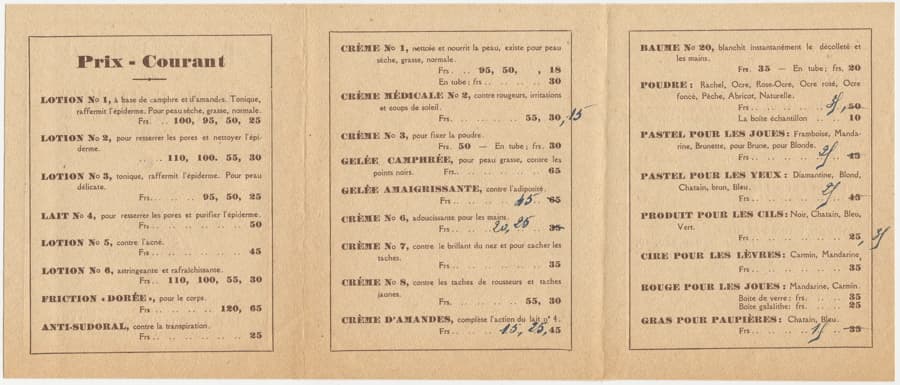 Prix - Courant
LOTION No 1, à base de camphre et d'amandes. Tonique,
raffermit l'épiderme. Pour peau sèche, grasse, normale.
Frs. .. 100, 95, 50, 25
LOTION No 2, pour resserrer les pores et nettoyer l'épi-
derme.
.. .. 110, 100. 55, 30
LOTION No 3, tonique, raffermit l'épiderme. Pour peau
délicate.
Frs. .. .. .. 95, 50, 25
LAIT No 4, pour resserrer les pores et purifier l'épiderme.
Frs .. .. .. .. .. .. 50
LOTION No 5, contre l'acné.
Frs .. .. .. .. .. .. 45
LOTION No 6, astringeante et rafraîchissante.
Frs .. 110, 100, 55, 30
FRICTION « DORÉE », pour le corps.
Frs .. .. .. .. 120, 65
ANTI-SUDORAL, contre la transpiration.
Frs .. .. .. .. .. .. 25
CRÈME No 1, nettoie et nourrit la peau, existe pour peau
sèche, grasse, normale.
Frs. .. 95, 50, , 18
En tube; frs .. .. .. .. 30
CRÈME MÉDICALE No 2, contre rougeurs, irritations
et coups de soleil.
Frs. .. .. .. .. 55, 30, 15
CRÈME No 3, pour fixer la poudre.
Frs. 50 — En tube; frs. 30
GELÉE CAMPHRÉE, pour peau grasse, contre les
points noirs. Frs.. .. .. .. .. 65
GELÉE AMAIGRISSANTE, contre l'adiposité.
Frs .. .. .. .. 45 65
CRÈME No 6, adoucissante pour les mains.
Frs .. .. 20, 25 35
CRÈME No 7, contre le brillant du nez et pour cacher les
taches.
Frs .. .. .. .. .. .. 35
CRÈME No 8, contre les taches de rousseurs et taches
jaunes.
Frs. .. .. .. .. 55, 30
CRÈME D'AMANDES, complète l'action du lait no 4.
Frs .. .. .. 15, 25, 45
BAUME No 20, blanchit instantanément le décolleté et
les mains.
Frs. 35 — En tube; frs. 20
POUDRE: Rachel, Ocre, Rose-Ocre, Ocre rosé, Ocre
foncé, Pêche, Abricot, Naturelle.
Frs .. .. .. .. , 50
La boîte échantillon .. .. 10
PASTEL POUR LES JOUES: Framboise, Manda-
rine, Brunette, pour Brune, pour Blonde.
Frs .. .. .. .. 25 45
PASTEL POUR LES YEUX: Diamantine, Blond,
Chatain, brun, Bleu.
Frs .. .. .. .. 25 45
PRODUIT POUR LES CILS: Noir, Chatain, Bleu,
Vert.
Frs .. .. .. .. .. .. 25, 35
CIRE POUR LES LÈVRES: Carmin, Mandarine,
Frs .. .. .. .. .. .. 35
ROUGE POUR LES JOUES: Mandarine, Carmin.
Boite de verre: frs. .. .. 35
Boite galalithe: frs. .. .. 25
GRAS POUR PAUPIÈRES: Chatain, Bleu.
Frs .. .. .. .. 15 35